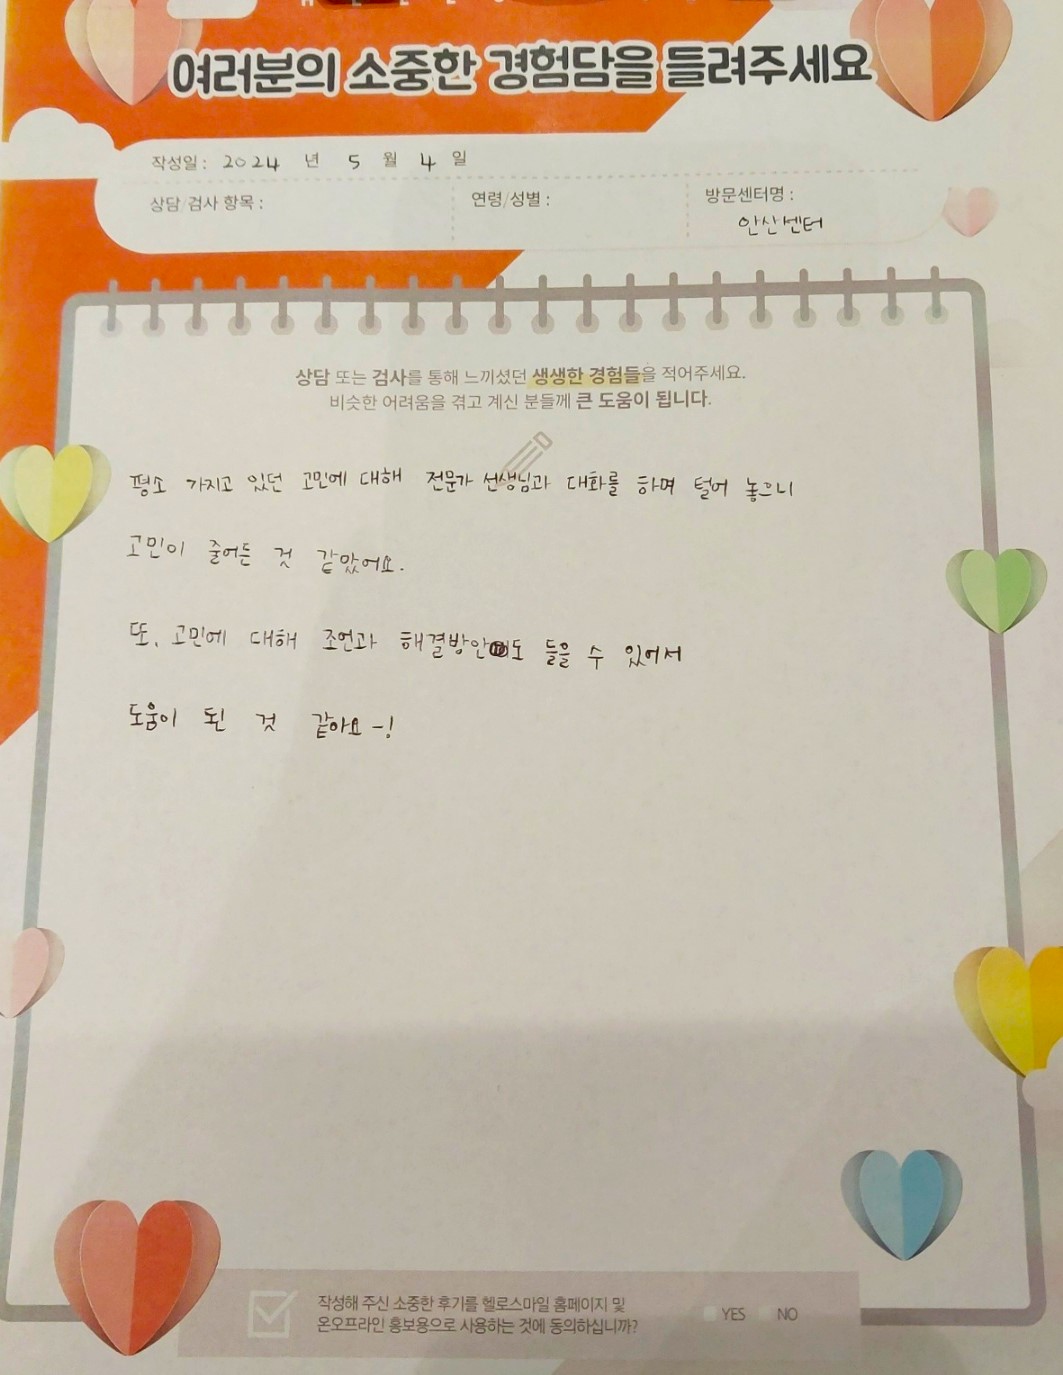 여러분의 소중한 경험담을 들려주세요
작성일 : 2024 년 5 월 4 일
상담/검사 항목 :
연령/성별 :
방문센터명 :
안산센터
상담 또는 검사를 통해 느끼셨던 생생한 경험들을 적어주세요.
비슷한 어려움을 겪고 계신 분들께 큰 도움이 됩니다.
평소 가지고 있던 고민에 대해 전문가 선생님과 대화를 하며 털어 놓으니
고민이 줄어든 것 같았어요.
또, 고민에 대해 조언과 해결방안도 들을 수 있어서
도움이 된 것 같아요-!
작성해 주신 소중한 후기를 헬로스마일 홈페이지 및
온오프라인 홍보용으로 사용하는 것에 동의하십니까?
YES NO